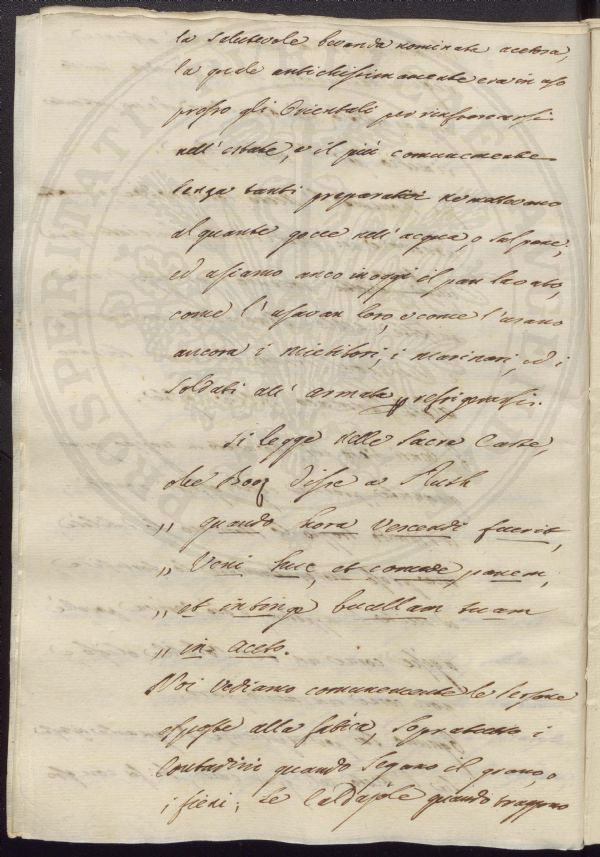 la salutevole bevanda nominata acetosa,
la quale antichissimamente era in uso
presso gli Orientali per rinfrescarsi
nell' estate, e il più comunemente
senza tanti preparativi ne mettevano
alquante gocce nell' acqua, o sul pane,
ed usiamo anco in oggi il pan lavato,
come l' usavan loro, e come l' usano
ancora i mietitori, i marinari, ed i
soldati all' armata p refrigerarsi.
Si legge nelle Sacre Carte,
che Booz disse a Ruth
„ quando hora vescendi fuerit,
„ Veni huc, et comede panem,
„ et intinge bucellam tuam
„ in aceto.
Noi vediamo comunemente le persone
esposte alla fatica, sopratutto i
Contadini quando segano il grano, o
i fieni; le Caldajole quando traggono
PROSPERITATI